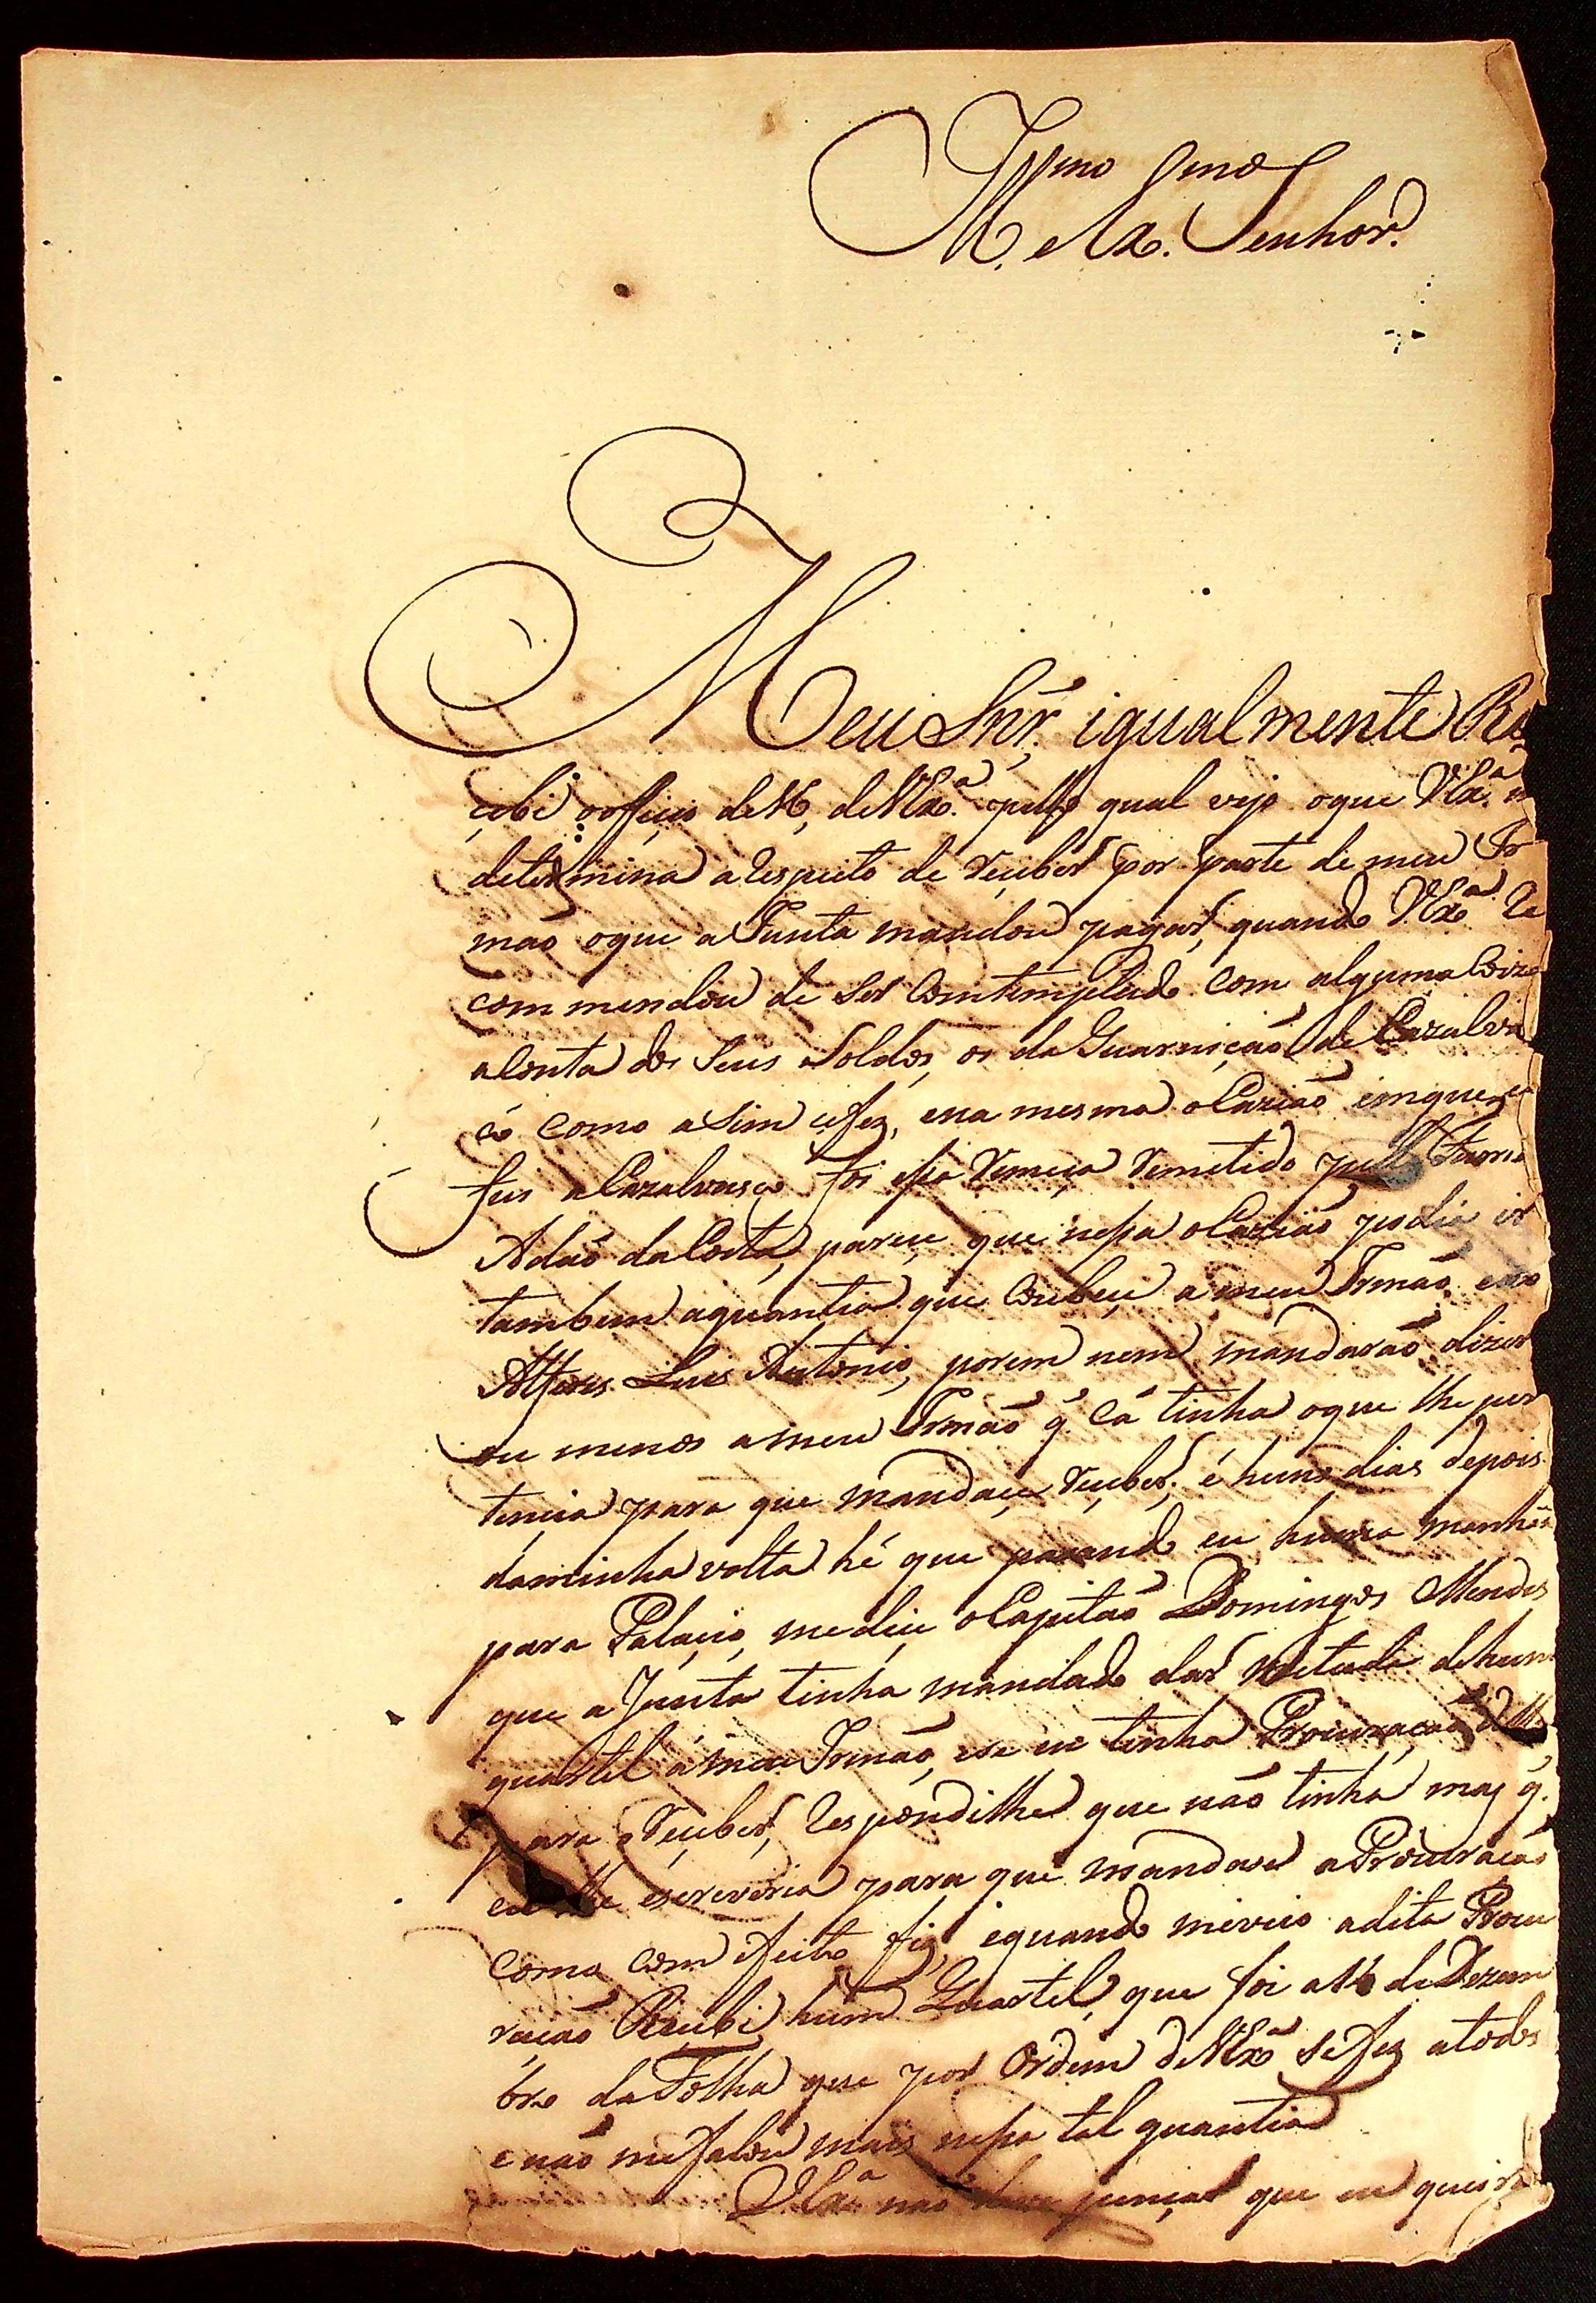 Illmo Exmo
Senhor.
Meu Snr. igualmente Re
çebi o offiçio de 16, de VExa. pello qual vejo oque VExa. m
determina a Respeito de Reçeber por parte de meu Ir
maõ oque a Junta mandou pagar, quando VExa Re
commendou de Ser Comtemplado com alguma Coiza
a Conta dos Seus Soldos, os da Guarniçaõ de Cazalvas
co como aSim çefez, ena mesma oCaziaõ emque eu
fui a Cazalvasco foi essa Remeça Remetido pello Furriel
Adaõ da Costa, pareçe que nessa oCaziaõ podia ir
tambem aquantia que Coubeçe a meu Irmaõ, e ao
Alferes Luis Antonio, porem nem mandaraõ dizer
ou menos a meu Irmaõ q̃ Cá tinha oque lhe per
tençia para que mandaçe Reçeber; é huns dias depois
daminha volta hé que paçando eu huma manhãa
para Palaçio, mediçe o Capitaõ Domingos Mendes
que a Junta tinha mandado dar Metade dehum
quartel á meu Irmaõ, ese eu tinha Procuraçaõ
para Reçeber, Respondilhe que naõ tinha mas q.
eu lhe escreveria para que mandase a Procuraçaõ
como com efeito fiz, equando meveio adita Procu
raçaõ Reçebi hum Quartel que foi a 16 de Dezem
bro da Folha que por Ordem deVExa Sefez atodos
e naõ mefalou mais nessa tal quantia
VExa. naõ pençar que eu queira